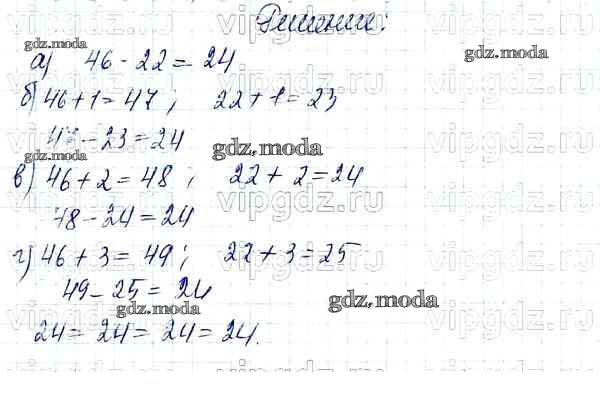 Решение:
а) 46 - 22 = 24
б) 46 + 1 = 47 ; 22 + 1 = 23
47 - 23 = 24
в) 46 + 2 = 48 ; 22 + 2 = 24
48 - 24 = 24
г) 46 + 3 = 49 ; 22 + 3 = 25
49 - 25 = 24
24 = 24 = 24 = 24.
gdz.moda
gdz.moda
gdz.moda
gdz.moda
gdz.moda
gdz.moda
vipgdz.ru
vipgdz.ru
vipgdz.ru
vipgdz.ru
vipgdz.ru
vipgdz.ru